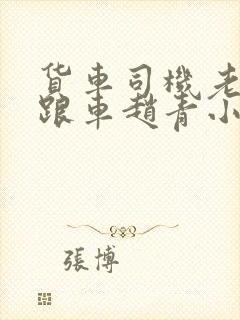 货車司機老
跟車趙青小
張博